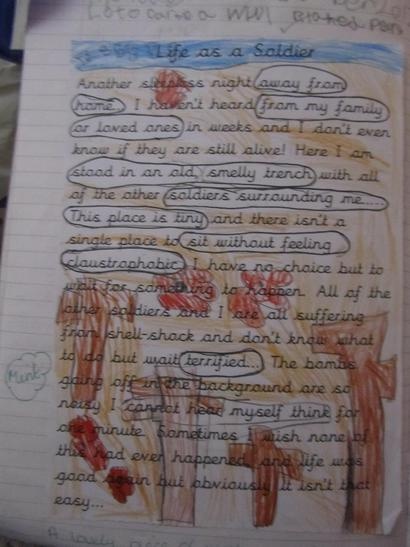 Loto carve a WW1
Life as a Soldier
Another sleepless night away from
home... I haven't heard from my family
or loved ones in weeks and I don't even
know if they are still alive! Here I am
stood in an old, smelly trench with all
of the other soldiers surrounding me.....
This place is tiny and there isn't a
single place to sit without feeling
claustrophobic. I have no choice but to
wait for something to happen. All of the
other soldiers and I are all suffering
from shell-shock and don't know what
to do but wait terrified... The bombs
going off in the background are so
noisy I cannot hear myself think for
one minute. Sometimes I wish none of
this had ever happened and life was
good again but obviously it isn't that
easy...
A lovely piece of